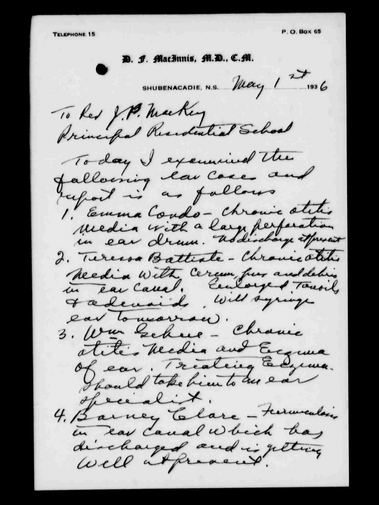 TELEPHONE 15
P. O. Box 65
D. F. MacInnis, M.D., C.M.
SHUBENACADIE, N.S. May 1st 1936
To Rev J. P. MacKey
Principal Residential School
Today I examined the
following ear cases and
report is as follows
1. Emma Condo - Chronic otitis
Media with a large perforation
in ear drum. No discharge at present
2. Teresa Battiste - Chronic otitis
Media with Cerum, pus and debris
in ear canal. Enlarged Tonsils
& adenoids. Will syringe
ear tomorrow.
3. Wm - Chronic
otitis Media and Eczema
of ear. Treating Eczema.
Should take him to an ear
specialist.
4. Barney Clare - Furunculosis
in ear canal which has
discharged and is getting
well at present.